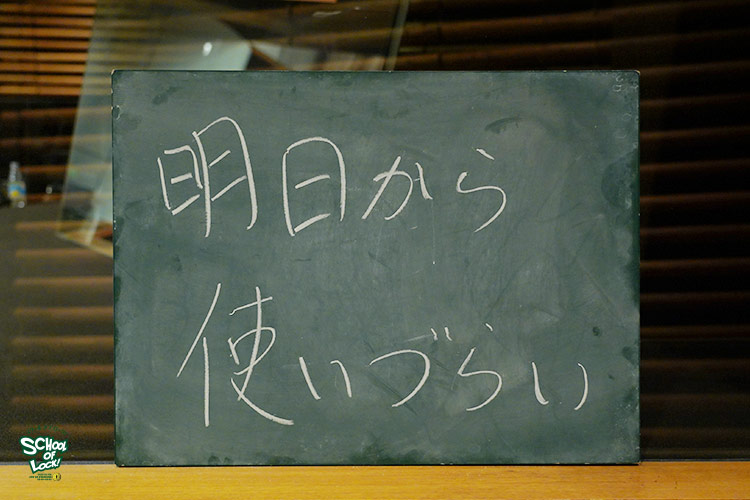 明日から
使いづらい
SCHOOL
OF
LOCK!